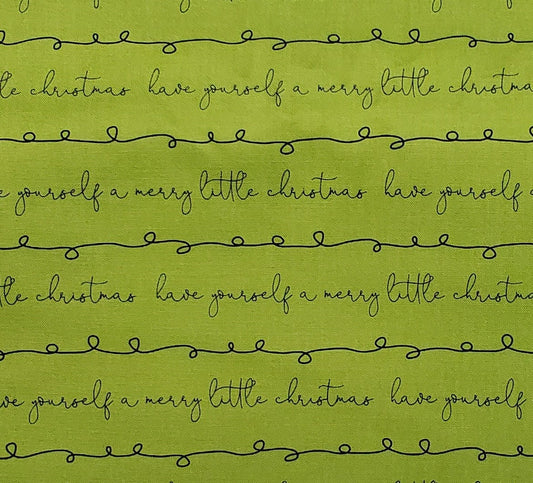 christmas have yourself a merry little
yourself a merry little christmas have yourself
christmas have yourself a merry little
yourself a merry little christmas have yourself